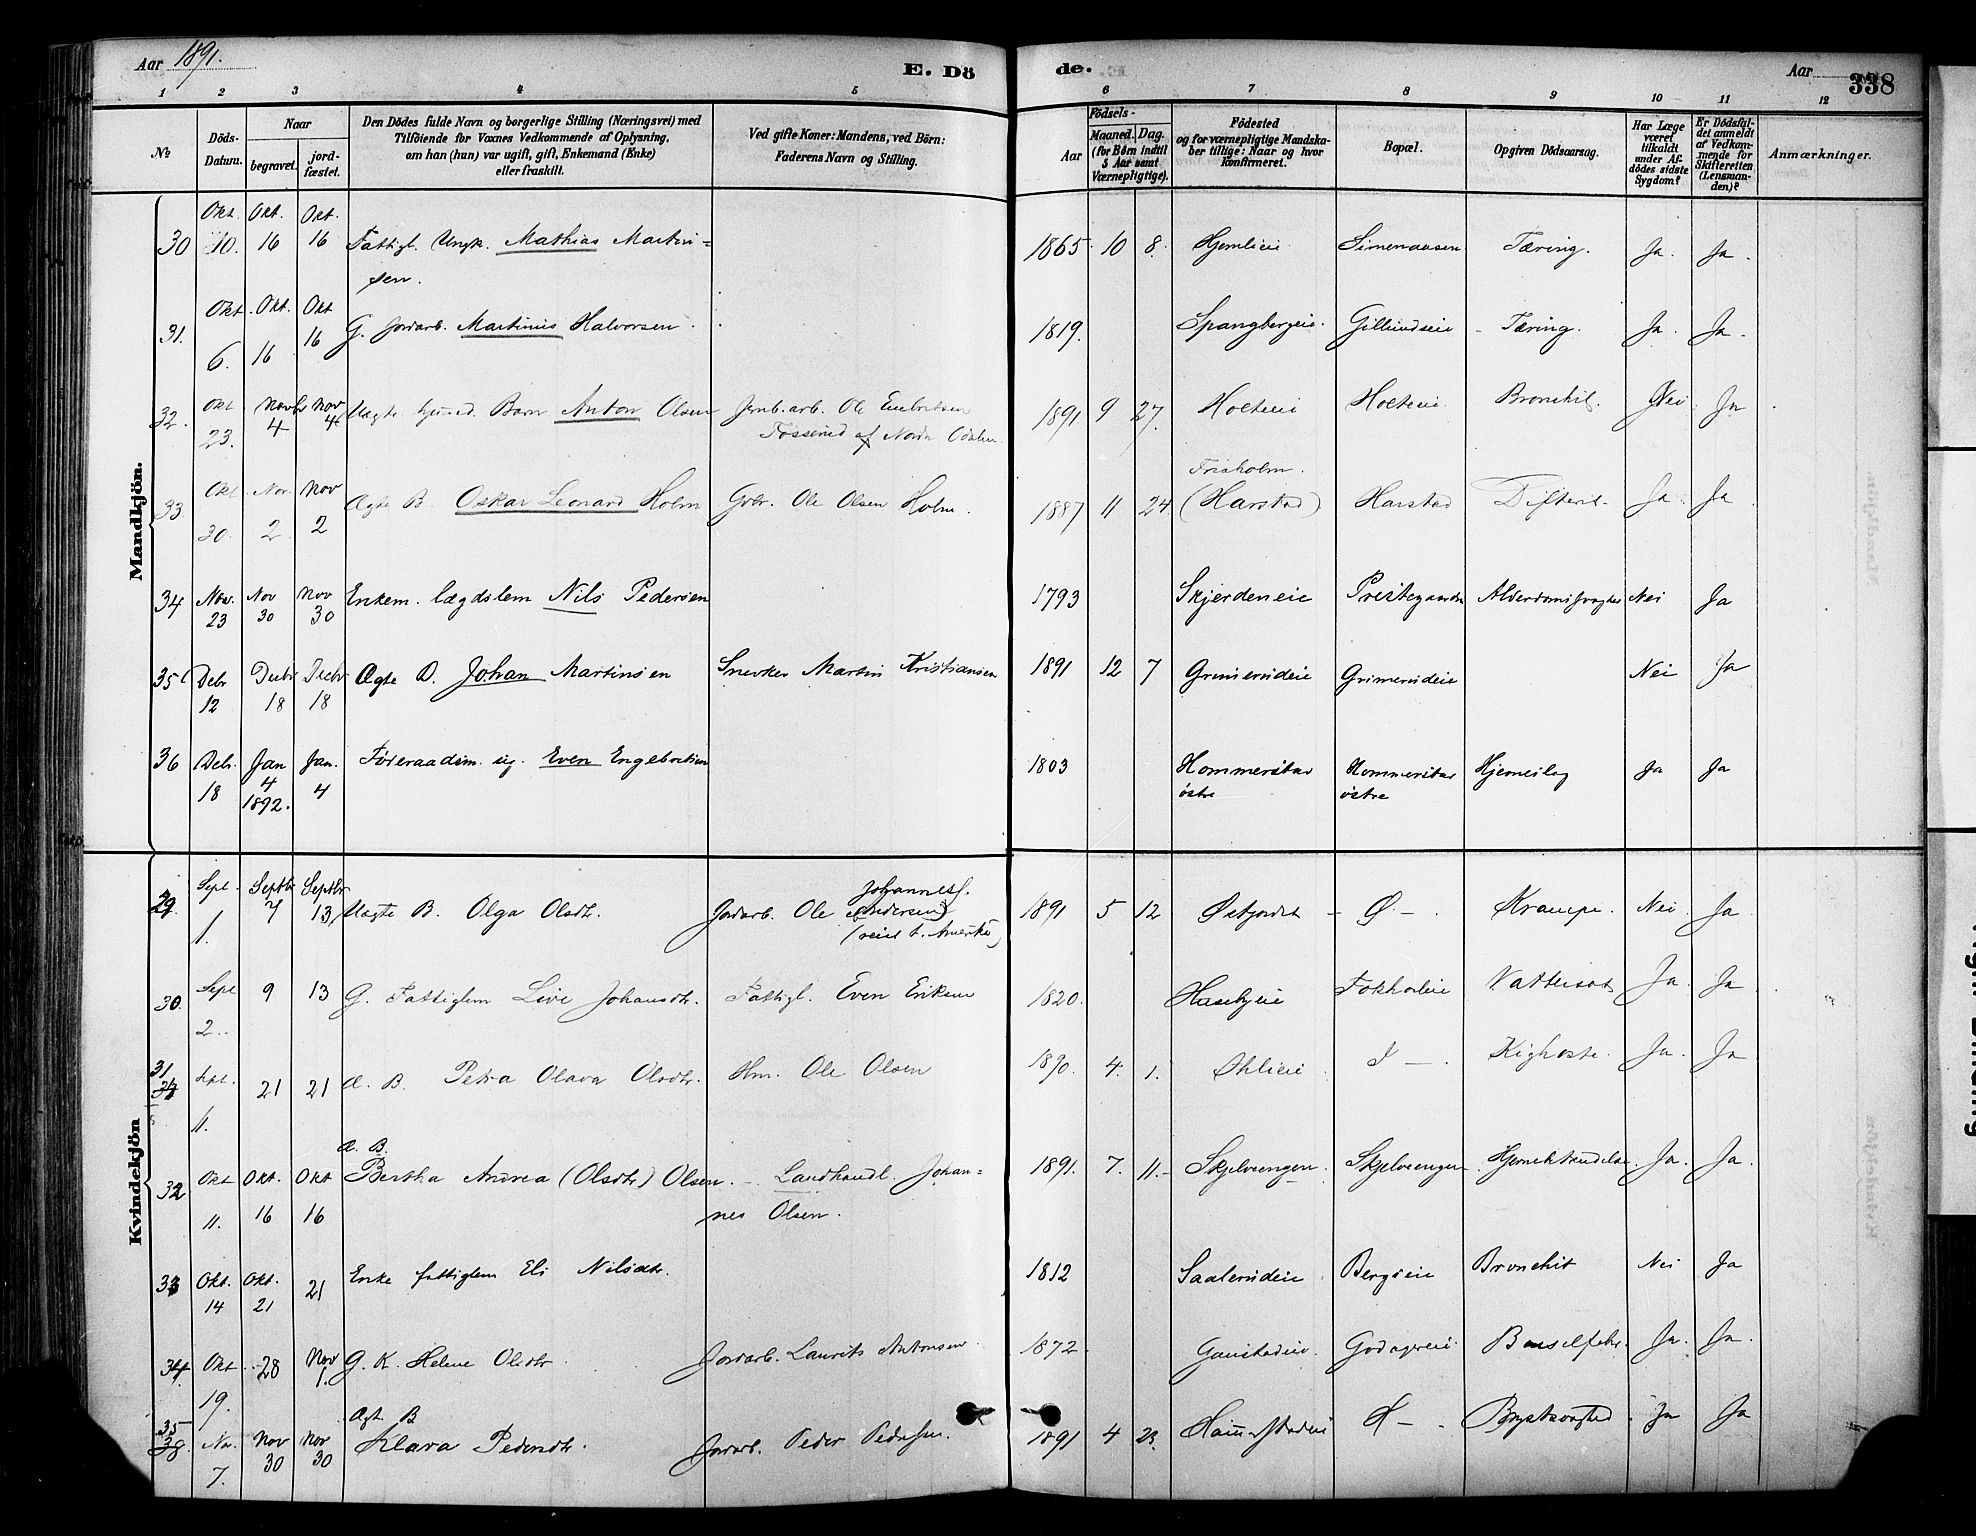 Aar 1891.
E. Dö
de.
Aar
338
1 2 3 4 5 6 7 8 9 10 11 12
No
Döds-Datum.
Naar
begravet.
jord-fæstet.
Den Dödes fulde Navn og borgerlige Stilling (Næringsvei) med
Tilföiende for Voxnes Vedkommende af Oplysning,
om han (hun) var ugift, gift, Enkemand (Enke)
eller fraskilt.
Ved gifte Koner: Mandens, ved Börn:
Faderens Navn og Stilling.
Födsels-
Aar
Maaned. Dag.
(for Börn indtil
5 Aar samt
Værnepligtige).
Födested
og for værnepligtige Mandska-
ber tillige: Naar og hvor
Konfirmeret.
Bopæl.
Opgiven Dödsaarsag.
Har Læge
været
tilkaldt
under Af-
dödes sidste
Sygdom?
Er Dödsfal-
det anmeldt
af Vedkom-
mende for
Skifteretten
(Lensman-
den)?
Anmærkninger.
Mandkjön.
30 Okt. 10. Okt. 16 Okt. 16 Fattigl. Ungk. Mathias Martin=
sen. 1865 10 8. Hjemlieie Simenaasen Tæring. Ja. Ja.
31. Okt. 6. Okt. 16 Okt 16 G. Jordarb. Martinus Halvorsen. 1819. Spangbergeie. Gillundseie Tæring. Ja. Ja.
32. Okt 23. Novbr 4 Nov 4 Uægte Barn Anton Olsen Jernb.arb. Ole Embretsen
af Nordr Odalen. 1891 9 27. Holteeie Holteeie Bronchit. Nei Ja.
33. Okt 30. Nov. 2 Nov 2 Ægte B. Oskar Leonard Holm Gbr. Ole Olsen Holm. 1887 11 24 Frisholm.
(Harstad) Harstad Difterit. Ja. Ja
34 Nov. 23 Nov 30 Nov 30 Enkem. lægdslem Nils Pedersen 1793 Skjerdeneie Prestegaarden Alderdomssvaghed Nei Ja
35 Debr 12 Decbr 18 Decbr 18 Ægte D. Johan Martinsen Snerker Martin Kristiansen 1891 12 7 Grimerudeie Grimerudeie Nei Ja
36 Debr. 18 Jan 4 1892. Jan. 4 Føderaadsm. ug. Even Engebretsen 1803 Hommerstad
østre Hommerstad
østre Hjerneslag Ja Ja
Kvindekjön
29 Sept 1. Septbr 7 Septbr 13 Uægte B. Olga Olsdtr. Jordarb. Ole Johannesf.
(Andersen)
(reist t. Amerika) 1891 5 12 Østjordet – Ø – . Krampe. Nei. Ja.
30. Sept 2. 9 13 G. Fattiglem Live Johansdtr. Fattigl. Even Eriksen 1820. Hasebyeie Fokholeie Vattersot Ja. Ja.
31 Sept. 11. 21 21 Æ. B. Petra Olava Olsdtr. Hm. Ole Olsen 1890. 4. 1. Ohlseie. Kighoste. Ja. Ja
32 Okt 11. Okt. 16 Okt 16 Æ. B.
Bertha Andrea (Olsdtr) Olsen. – Landhandl. Johan=
nes Olsen. 1891. 7. 11. Skjelveengen. Skjelveengen. Ja. Ja.
33 Okt. 14 Okt. 21 21 Enke fattiglem Eli Nilsdtr. 1812 Saalerudeie Bergseie Bronchit Nei Ja
34 Okt 19. 28 Nov 1. G. K. Helene Olsdtr. Jordarb. Laurits Antonsen 1872 Gaustadeie Godagereie Barselfeber. Ja. Ja.
35 Nov. 7. Nov 30 Nov 30 Ægt. B
Klara Pedersdtr. Jordarb. Peder Pedersen. 1891 4 23. Brystsvaghed. Ja Ja